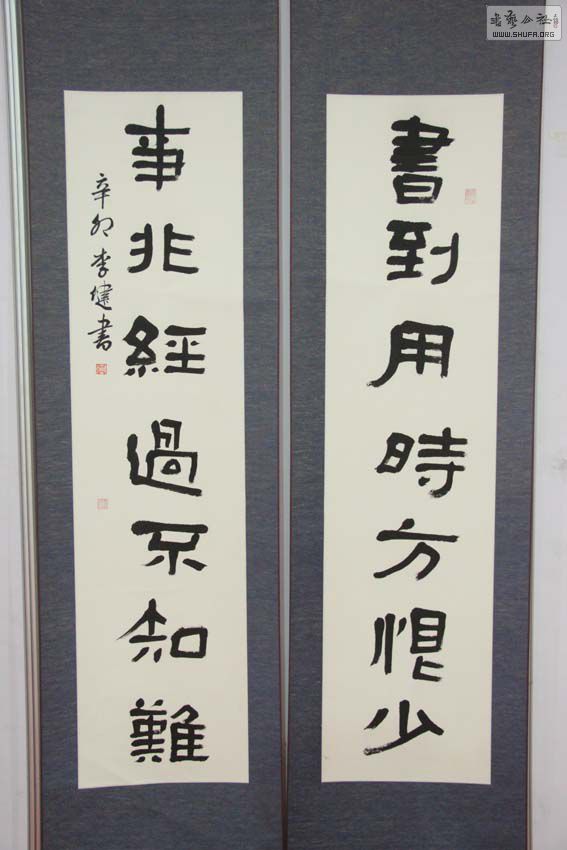 書到用時方恨少
事非經過不知難
辛卯李健書
WWW.SHUFA.ORG